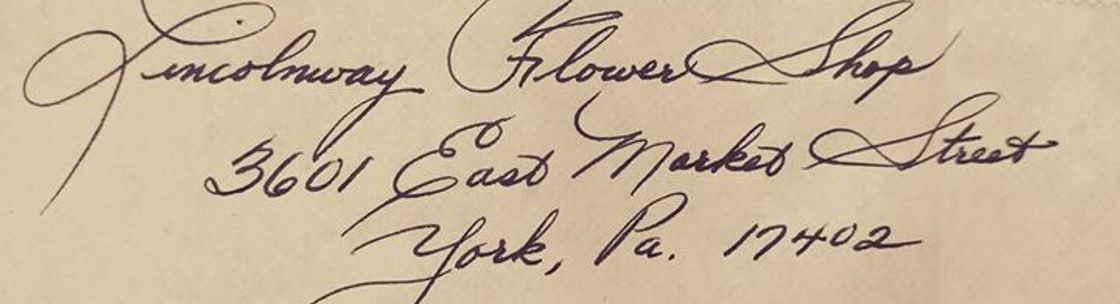 Lincolnway Flower Shop
3601 East Market Street
York, Pa. 17402